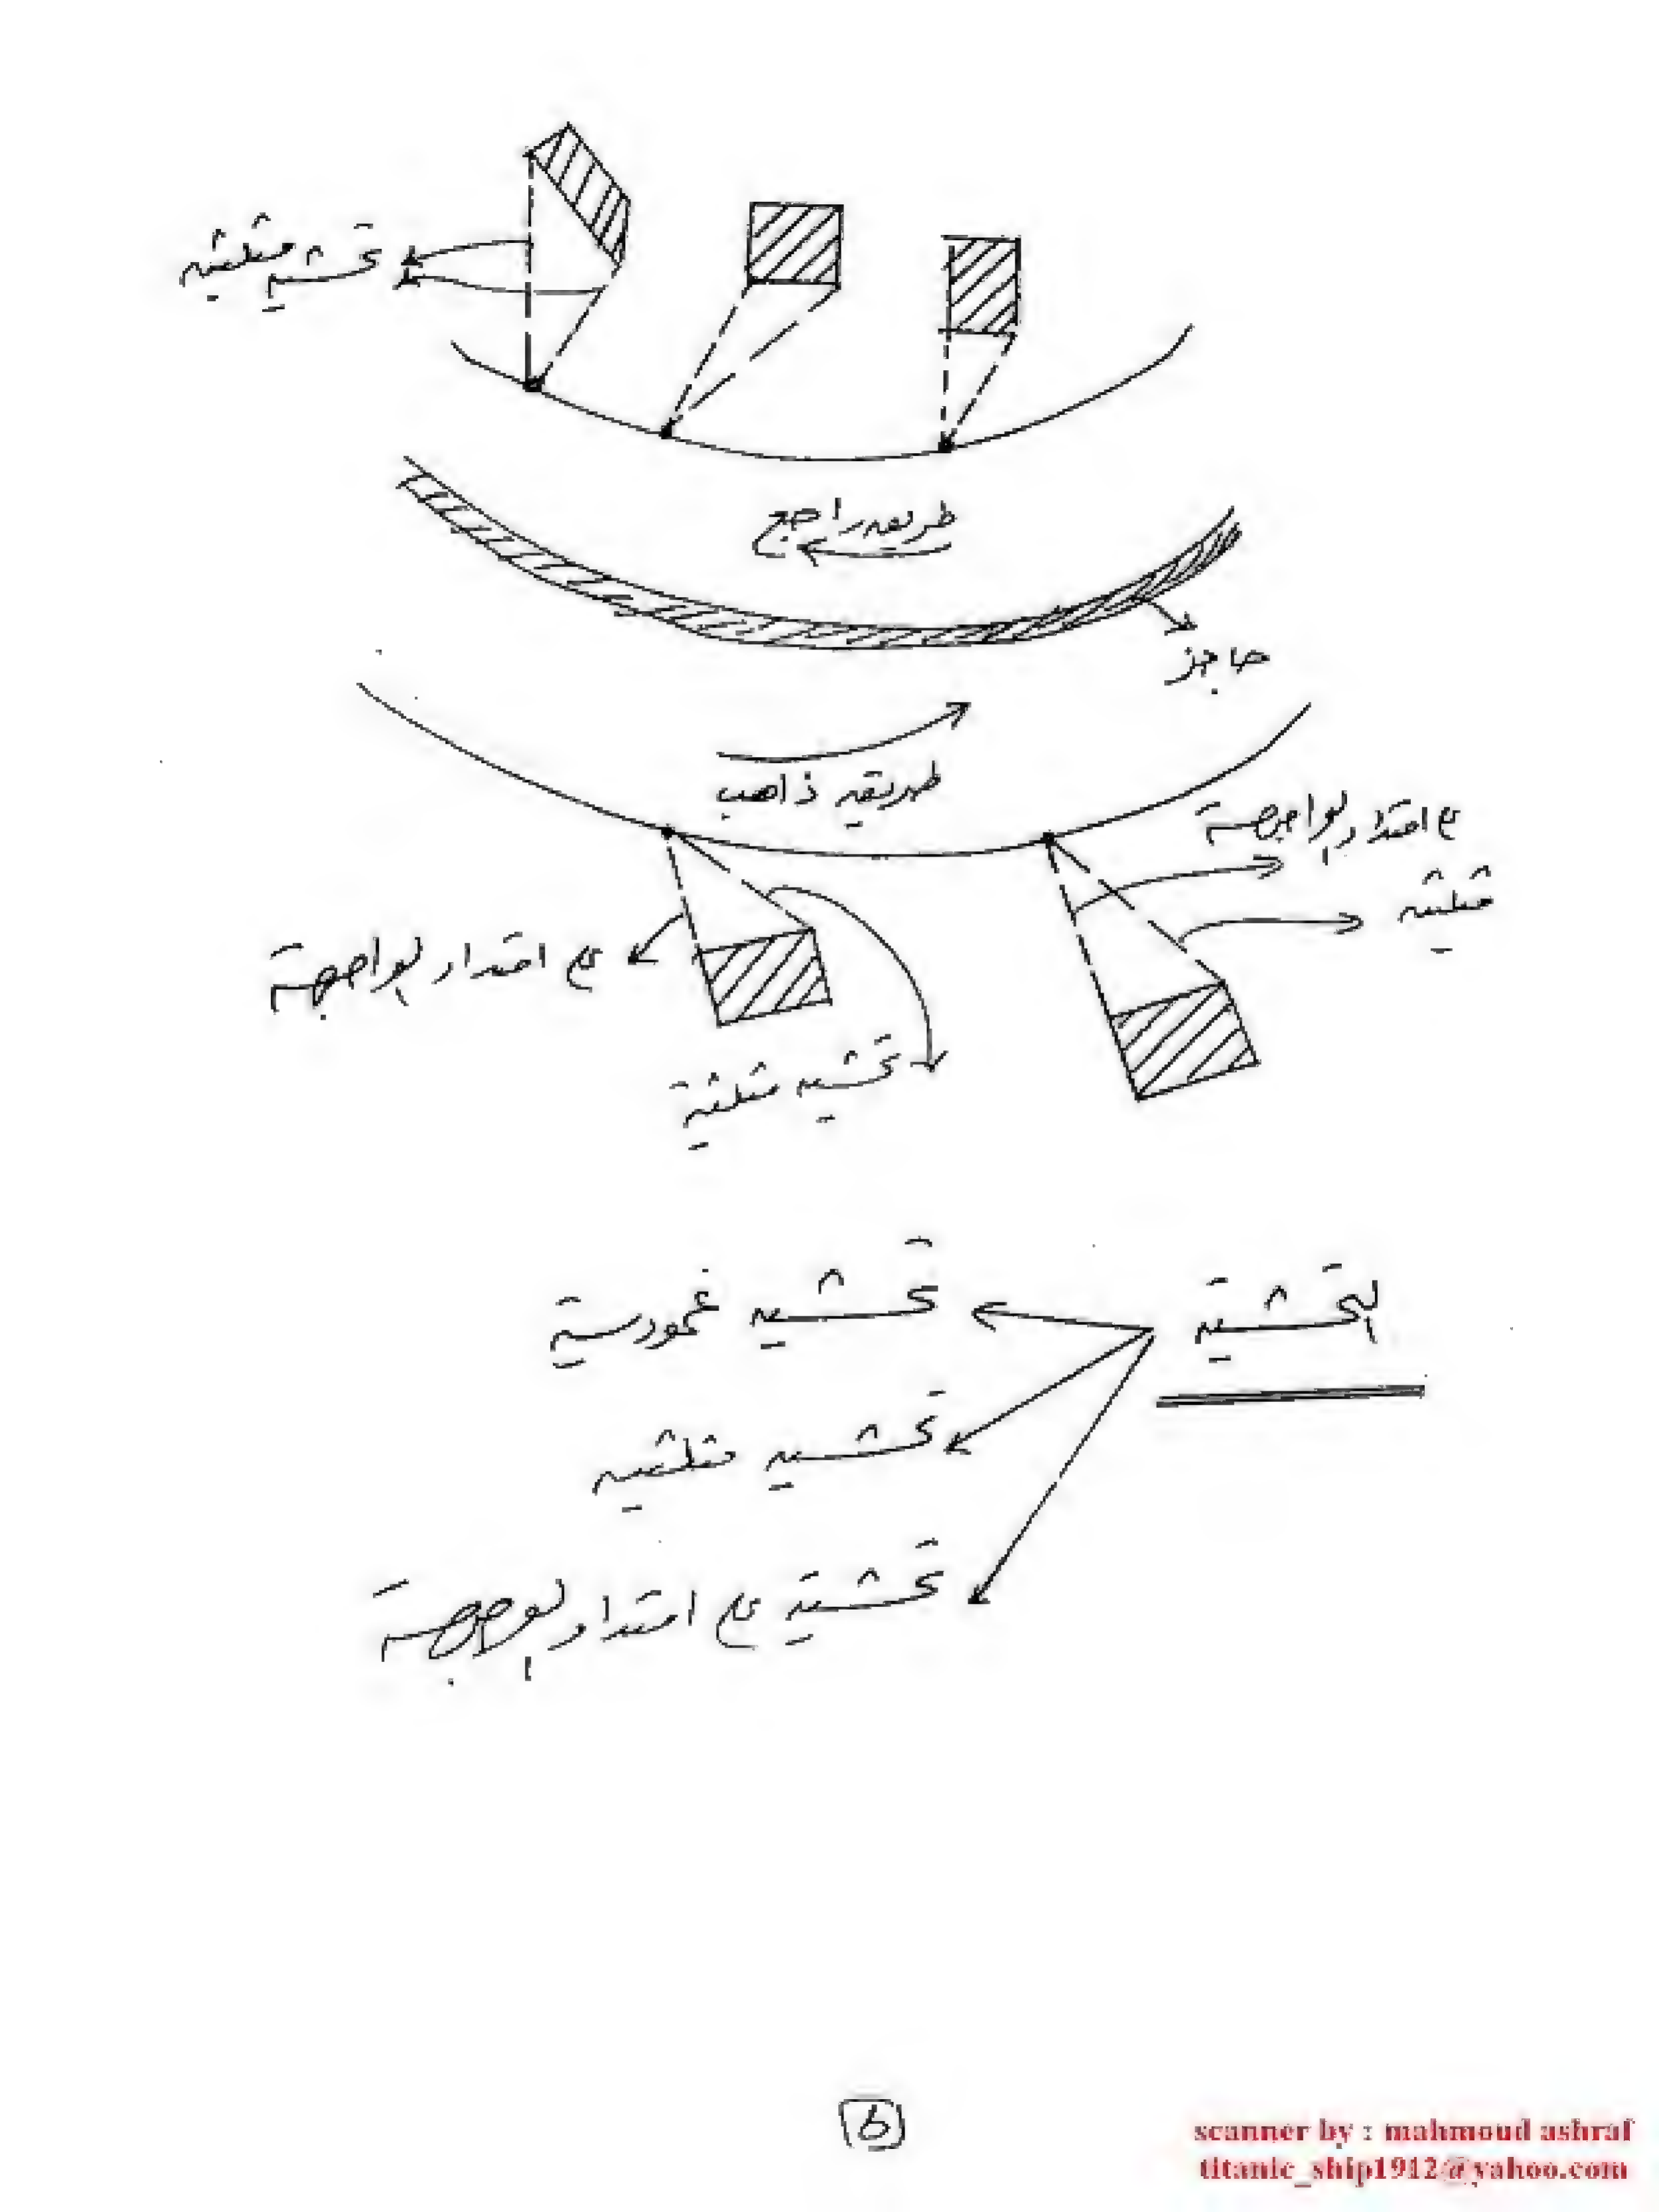 تحشيه مثلثيه
طريق راجع
حاجز
طريق ذاهب
على امتداد الواجهة
مثلثيه
على امتداد الواجهة
تحشيه مثلثية
التحشية
تحشيه عمودية
تحشيه مثلثيه
تحشية على امتداد الواجهة
6
scanner by : mahmoud ashraf
titanic_ship1912@yahoo.com